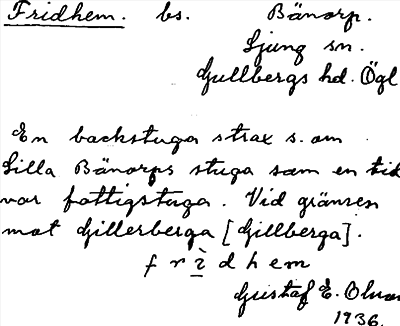 Fridhem. bs. Bänorp.
Ljung sn.
Gullbergs hd. Ögl
En backstuga strax s. om
Lilla Bänorps stuga som en tid
var fattigstuga. Vid gränsen
mot Gillerberga [Gillberga].
f r ì d h e m
Gustaf E.
1936.